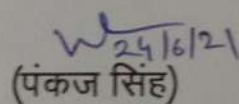 24/6/21
(पंकज सिंह)